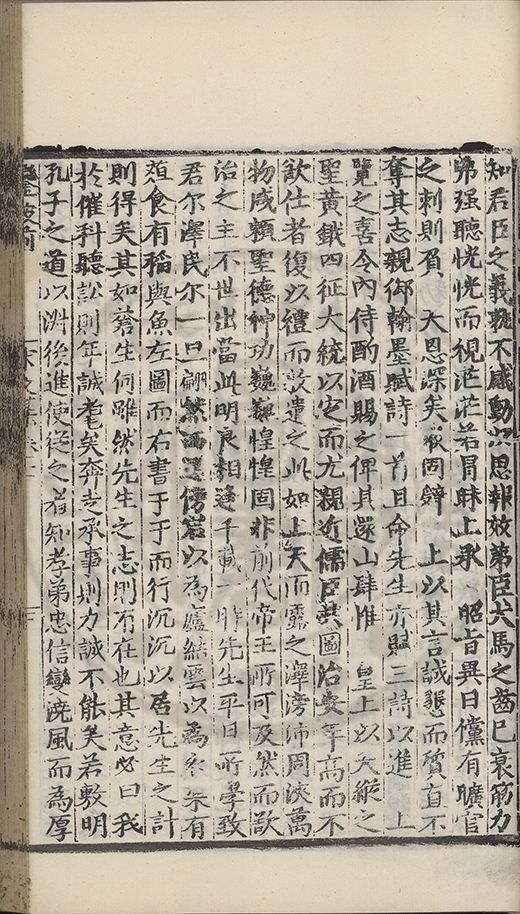 知君臣之義孰不感動以思報效第臣犬馬之齒已衰筋力
弗强聽恍恍而視茫茫若冐昧上承 昭旨異日儻有曠官
之刺則負 大恩深矣敢固辭 上以其言誠懇而質直不
奪其志親御翰墨賦詩一首且命先生亦賦三詩以進 上
覽之喜令內侍酌酒賜之俾其還山肆惟 皇上以大縱之
聖黃鉞四征大統以定而尤親近儒臣共圖治安年高而不
欲仕者復以禮而敦遣之此如上天而露之澤滂沛周浹萬
物咸賴聖德神功巍巍惶惶固非前代帝王所可及然而歆
治之主不世出當此明良相逢千載一時先生平日所學致
君尔澤民尔一曰翩然 傍岩以為廬結雲以為衣朱有
蕵食有稲與魚左圖而右書于于而行沉沉以居先生之計
則得矣其如蒼生何雖然先生之志則不在也其意必曰我
於催科聽訟則年誠耄矣奔走承事則力誠不能矣若敷明
孔子之道以淑後進使從之者知孝弟忠信變澆風而為厚